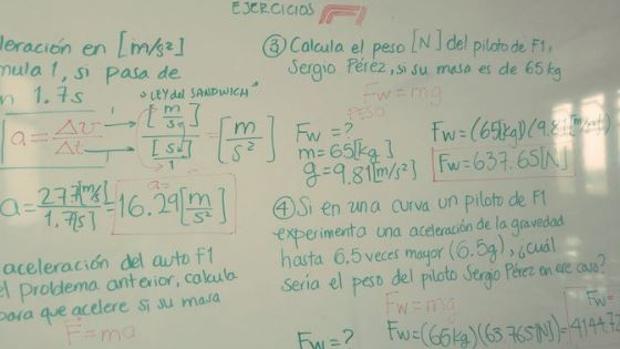 EJERCICIOS F1
leración en [m/s²]
mula 1, si pasa de
n 1.7s
"LEY del SANDWICH"
a = Δv / Δt → [m/s] / [s] / 1 = [m/s²]
a = 27.7[m/s] / 1.7[s] = 16.29[m/s²]
aceleración del auto F1
el problema anterior, calcula
para que acelere si su masa
F=ma
③ Calcula el peso [N] del piloto de F1,
Sergio Pérez, si su masa es de 65kg
Fw=mg
PESO
Fw=?
m=65[kg]
g=9.81[m/s²]
Fw=(65[kg])(9.81[m/s²])
Fw=637.65[N]
④ Si en una curva un piloto de F1
experimenta una aceleración de la gravedad
hasta 6.5 veces mayor (6.5g), ¿cuál
sería el peso del piloto Sergio Pérez en ese caso?
Fw=mg
Fw=?
Fw=(65kg)(63.765[N])=4144.7
Fw=